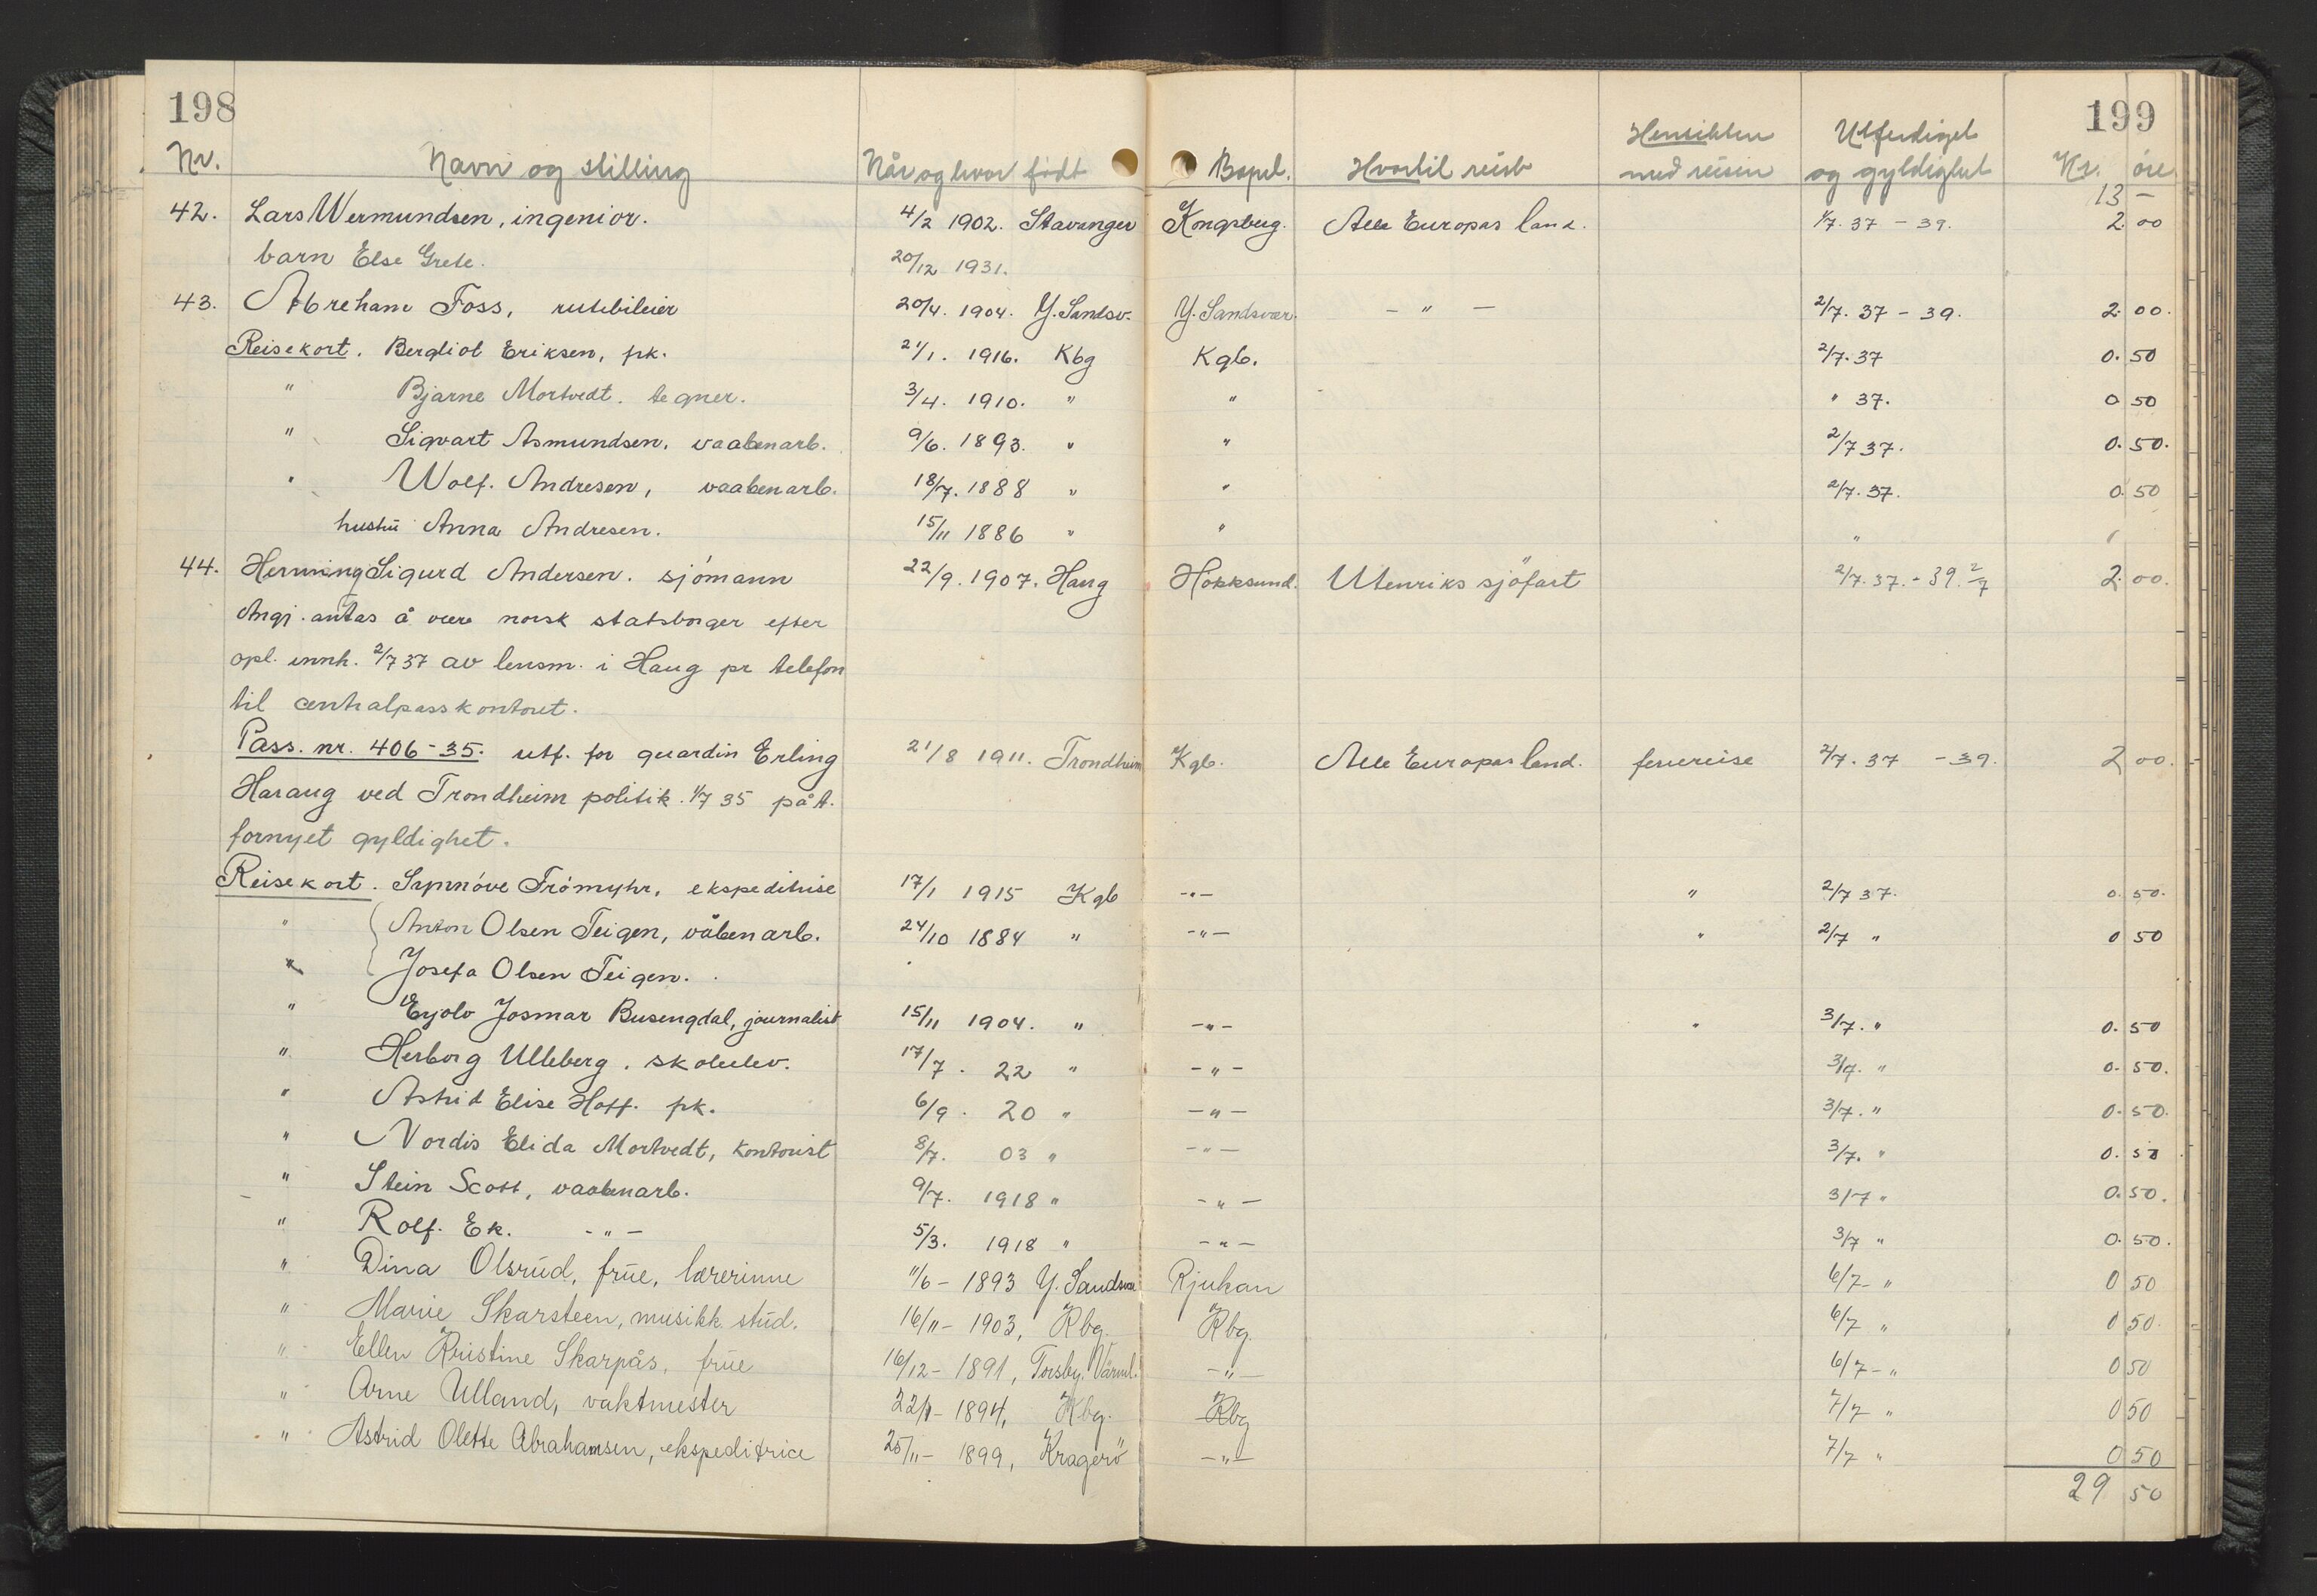 198
199
Nr. Navn og stilling Når og hvor født Bopel. Hvortil reisb Hensikten med reisen Utferdiget og gyldighet Kr. øre
13 –
42. Lars Wermundsen, ingeniør. 4/2 1902. Stavanger Kongsberg. Alle Europas land. 1/7. 37 – 39. 2. 00
barn Else Grete. 20/12 1931.
43. Abreham Foss, rutebileier 20/4. 1904. Y. Sandsv. Y. Sandsvær. – " – 2/7. 37 – 39. 2. 00.
Reisekort. Bergliot Eriksen, pk. 21/1. 1916. Kbg Kgb. 2/7. 37 0. 50
" Bjarne Mortvedt. tegner. 3/4. 1910. " " " 37. 0 50
" Sigvart Asmundsen, vaabenarb. 9/6. 1893. " " 2/7 37. 0. 50.
" Wolf. Andresen, vaabenarb. 18/7. 1888 " " 2/7. 37. 0. 50
hustru Anna Andresen. 15/11 1886 " " "
44. Henning Sigurd Andersen. sjömann 22/9. 1907. Haug Hokksund. Utenriks sjöfart 2/7. 37. – 39. 2/7 2. 00.
Angj. antas å være norsk statsborger efter
opl. innh. 2/7 37 av lensm. i Haug pr telefon
til centralpasskontoret.
Pass. nr. 406–35. utf. for guardin Erling 21/8 1911. Trondheim Kgb. Alle Europas land. feriereise 2/7. 37 – 39. 2 00.
Haraug ved Trondheim politik. 1/7 35 påt.
fornyet gyldighet.
Reisekort. Synnöve Trömyhr, ekspeditrise 17/1 1915 Kgb –"– " 2/7 37. 0. 50.
" Anton Olsen Teigen, våbenarb. 24/10 1884 " –"– " 2/7 " 0 50
" Josefa Olsen Teigen.
" Eyolv Josmar Busengdal, journalist 15/11 1904. " –"– " 3/7. " 0. 50
" Herborg Ulleberg. skoleelev. 17/7. 22 " –"– 3/7. " 0. 50.
" Astrid Elise Hoff. pk. 6/9. 20 " –"– 3/7. " 0. 50.
" Nordis Elida Mortvedt, kontorist 8/7. 03 " –"– 3/7. " 0. 50
" Stein Scott, vaabenarb. 9/7. 1918 " –"– 3/7 " 0. 50.
" Rolf. Ek. –"– 5/3. 1918 " –"– 3/7 " 0. 50.
" Dina Olsrud, frue, lærerinne 11/6 – 1893 Y. Sandsvær Rjukan 6/7– " 0 50
" Marie Skarsteen, musikk stud. 16/11 – 1903, Kbg. Kbg. 6/7 " 0 50.
" Ellen Kristine Skarpås, frue 16/12 – 1891, Torsby, Värml. –"– 6/7– " 0 50
" Arne Ulland, vaktmester 22/1 – 1894, Kbg. Kbg 7/7 " 0 50
" Astrid Olette Abrahamsen, ekspeditrice 25/11 – 1899, Kragerö –"– 7/7 " 0 50
29 50